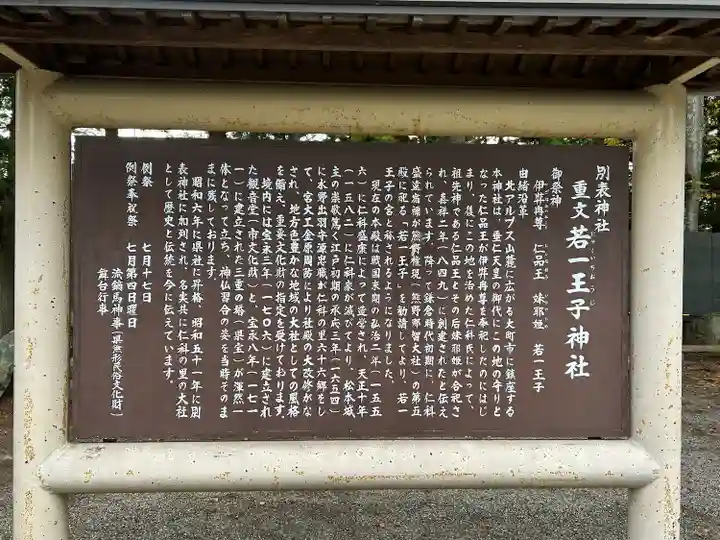 別表神社
重文 若一王子神社
にゃくいちおうじ
御祭神
伊弉冉尊 仁品王 妹耶姫 若一王子
由緒沿革
北アルプス山麓に広がる大町市に鎮座する
本神社は、垂仁天皇の御代にこの地の守りと
なった仁品王が伊弉冉尊を奉祀したのにはじ
まり、後にこの地を治めた仁科氏によって、
祖先神である仁品王とその后妹耶姫が合祀さ
れ、嘉祥二年(八四九)に創建されたと伝え
られています。降って鎌倉時代初期に、仁科
盛遠宿禰が熊野権現(熊野那智大社)の第五
殿に祀る「若一王子」を勧請してより、若一
王子の宮と称されるようになりました。
現在の本殿は戦国末期の弘治二年(一五五
六)に仁科盛康によって造営され、天正十年
(一五八二)に仁科家が滅びてより、松本城
主の崇敬篤く江戸初期の承応三年(一六五四)
に水野出羽守源忠職が仁科の里六十六郷をし
て、宮大工金原周防により社殿の大改修がな
され、地方色豊かな地域の大社としての風格
を備え、重要文化財の指定を受けております。
境内には宝永三年(一七〇六)に建立され
た観音堂(市文化財)と、宝永八年(一七一
一)に建立された三重の塔(県宝)が渾然一
体となって立ち、神仏習合の姿を当時そのま
まに残しております。
昭和六年に県社に昇格、昭和五十一年に別
表神社に加列され、名実共に仁科の里の大社
として歴史と伝統を今に伝えています。
例祭 七月十七日
例祭奉祝祭 七月第四日曜日
流鏑馬神事(県無形民俗文化財)
舞台行事